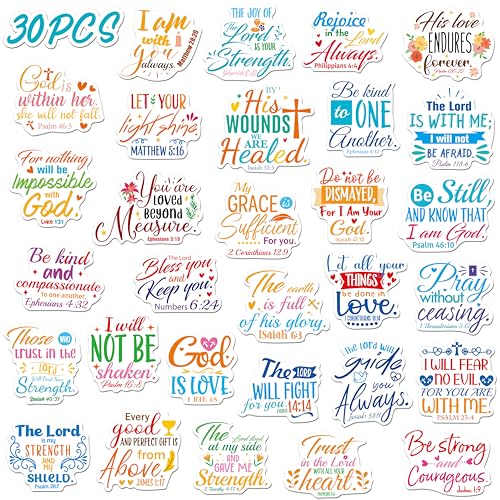 30PCS
I am
with
you
always.
Matthew 28:20
THE JOY OF
The
Lord
IS YOUR
Strength.
Rejoice
in the
Lord
Always.
Philippians 4:4
His love
ENDURES
forever.
God is
within her
she will not fall.
Psalm 46:5
LET YOUR
light shine
MATTHEW 5:16
BY
His
WOUNDS
WE ARE
Healed.
Isaiah 53:5
Be kind
to ONE
Another.
Ephesians 4:32
The Lord
IS WITH ME;
I will not
BE AFRAID.
Psalm 118:6
For nothing
will be
Impossible
with
God.
Luke 1:37
You are
LOVED
Beyond
Measure
Ephesians 3:19
My
GRACE is
Sufficient
For you.
2 Corinthians 12:9
Do not be
DISMAYED,
For I Am Your
God.
Isaiah 41:10
Be Still
AND KNOW THAT
I am God.
Psalm 46:10
Be kind
and
compassionate
to one another.
Ephesians 4:32
The Lord
Bless you
and
Keep you.
Numbers 6:24
The earth
is full
of his glory.
Isaiah 6:3
Let all your
THINGS
be done in
Love
Pray
without
ceasing.
Those WHO
trust in the
lord
Will Find New
Strength.
Isaiah 40:31
I will
NOT BE
shaken.
Psalm 16:8
God
IS LOVE
The LORD
WILL FIGHT
for you.
14:14
The lord will
guide
you
Always.
I WILL FEAR
NO EVIL
FOR YOU ARE
WITH ME.
PSALM 23:4
The Lord
IS MY
STRENGTH
AND MY
SHIELD.
PSALM 28:7
Every
good
AND PERFECT GIFT IS
from
Above.
JAMES 1:17
The
Lord stood
at my side
AND
GAVE ME
Strength.
2 Timothy 4:17
Trust
in the Lord
WITH ALL YOUR
heart
Be strong
and
Courageous.
Joshua 1:9